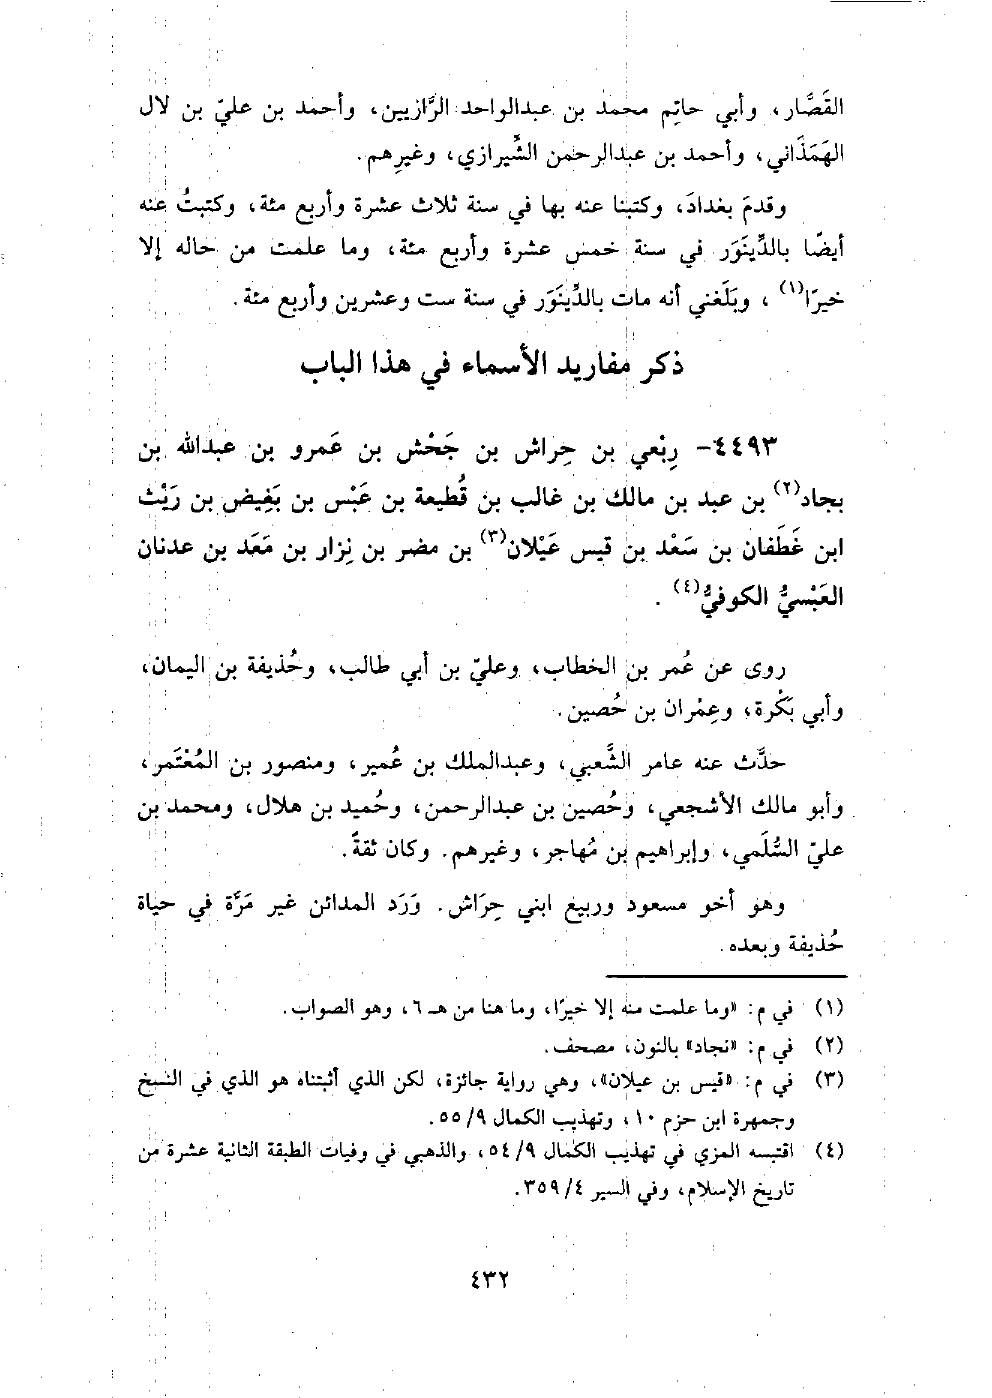 القَصَّار، وأبي حاتِم محمد بن عبدالواحد الرَّازيين، وأحمد بن عليّ بن لال
الهَمَذَاني، وأحمد بن عبدالرحمن الشِّيرازي، وغيرِهم.
وقدمَ بغدادَ، وكتبنا عنه بها في سنة ثلاث عشرة وأربع مئة، وكتبتُ عنه
أيضًا بالدِّينَوَر في سنة خمس عشرة وأربع مئة، وما علمت من حاله إلا
خيرًا(١)، وبَلَغني أنه مات بالدِّينَوَر في سنة ست وعشرين وأربع مئة.
ذكر مفاريد الأسماء في هذا الباب
٤٤٩٣- رِبْعي بن حِراش بن جَحْش بن عَمرو بن عبدالله بن
بجاد(٢) بن عبد بن مالك بن غالب بن قُطيعة بن عَبْس بن بَغِيض بن رَيْث
ابن غَطَفان بن سَعْد بن قيس عَيْلان(٣) بن مضر بن نِزار بن مَعَد بن عدنان
العَبْسيُّ الكوفيُّ(٤).
روى عن عُمر بن الخطاب، وعليّ بن أبي طالب، وحُذيفة بن اليمان،
وأبي بَكْرة، وعِمْران بن حُصين.
حدَّث عنه عامر الشَّعبي، وعبدالملك بن عُمير، ومنصور بن المُعْتَمر،
وأبو مالك الأشجعي، وحُصين بن عبدالرحمن، وحُميد بن هلال، ومحمد بن
عليّ السُّلَمي، وإبراهيم بن مُهاجر، وغيرهم. وكان ثقةً.
وهو أخو مسعود وربيع ابني حِرَاش. وَرَد المدائن غير مَرَّة في حياة
حُذيفة وبعده.
(١) في م: «وما علمت منه إلا خيرًا، وما هنا من هـ ٦، وهو الصواب.
(٢) في م: «نجاد» بالنون، مصحف.
(٣) في م: «قيس بن عيلان»، وهي رواية جائزة، لكن الذي أثبتناه هو الذي في النسخ
وجمهرة ابن حزم ١٠، وتهذيب الكمال ٩/ ٥٥.
(٤) اقتبسه المزي في تهذيب الكمال ٩/ ٥٤، والذهبي في وفيات الطبقة الثانية عشرة من
تاريخ الإسلام، وفي السير ٤/ ٣٥٩.
٤٣٢